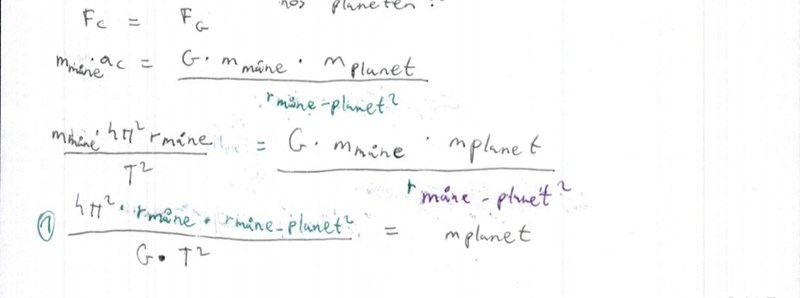 hos planeten?
F_c = F_G
m_måne · a_c = G · m_måne · m_planet / r_måne-planet²
m_måne · 4π² r_måne / T² = G · m_måne · m_planet / r_måne-planet²
① 4π² · r_måne · r_måne-planet² / G · T² = m_planet